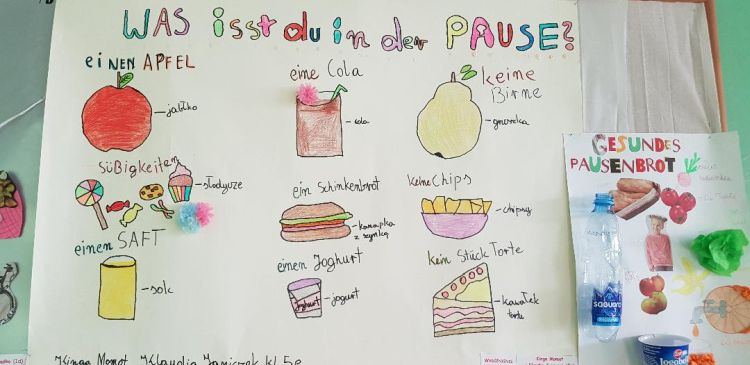 WAS isst du in der PAUSE?
einen APFEL
jabłko
eine Cola
cola
keine Birne
gruszka
süßigkeiten
słodycze
ein Schinkenbrot
kanapka z szynką
keine Chips
chipsy
einen SAFT
sok
einen Joghurt
Joghurt
jogurt
kein Stück Torte
kawałek tortu
Kinga Momot, Klaudia kl. 5e
GESUNDES PAUSENBROT
saguaro
Kinga Momot